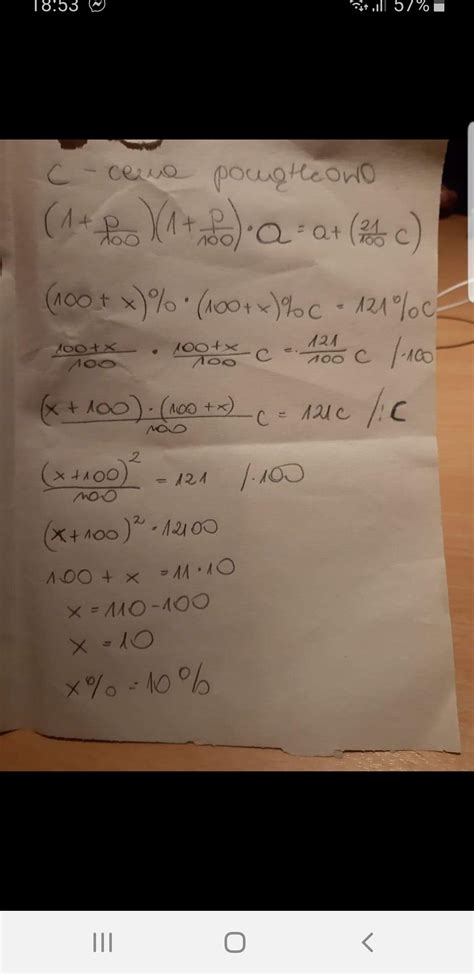 18:53 57%
C - cena początkowa
(1+p/100)(1+p/100)·a=a+(21/100 c)
(100+x)%·(100+x)%C = 121%C
100+x/100 · 100+x/100 C = 121/100 C /·100
(x+100)·(100+x)/100 C = 121C /:C
(x+100)²/100 = 121 /·100
(x+100)²=12100
100+x=11·10
x=110-100
x=10
x%=10%